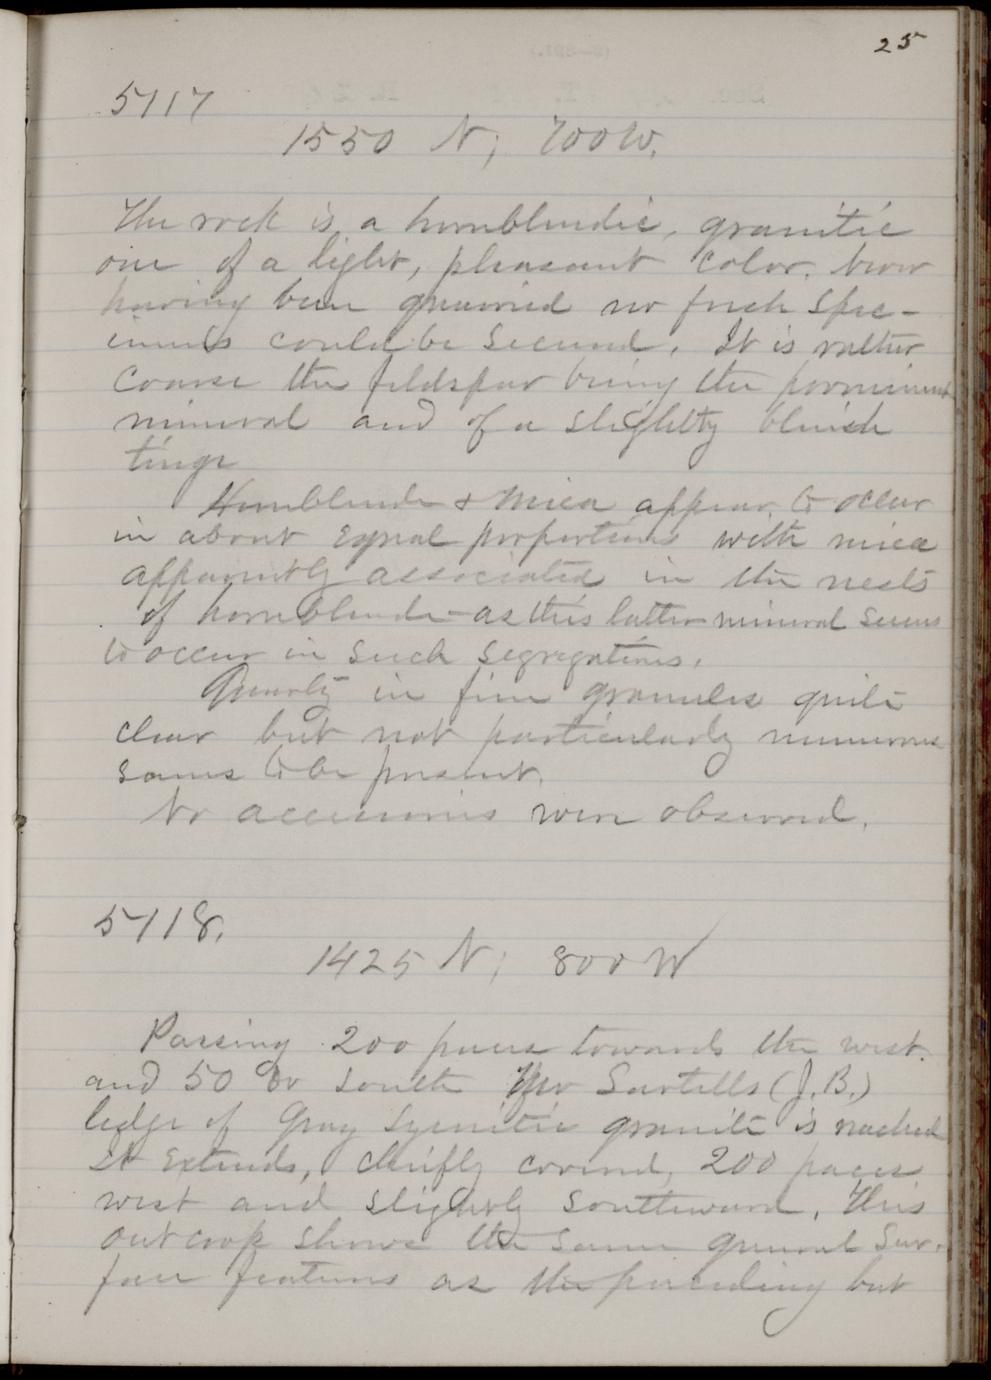 25
5117
1550 N; 700 W.
The rock is a hornblendic, granitic
one of a light, pleasant color. None
having been quarried no fresh spec-
imens could be secured. It is rather
coarse the feldspar being the prominent
mineral and of a slightly bluish
tinge
Hornblende & mica appear to occur
in about equal proportions with mica
apparently associated in the nests
of hornblende - as this latter mineral seems
to occur in such segregations.
Quartz in fine granules quite
clear but not particularly numerous
seems to be present.
No accessories were observed.
5118.
1425 N; 800 W
Passing 200 paces towards the west.
and 50 to south Mr Sartells (J.B.)
ledge of Gray Syenitic granite is reached
It extends, chiefly covered, 200 paces
west and slightly southward. This
outcrop shows the same general sur-
face features as the preceding but